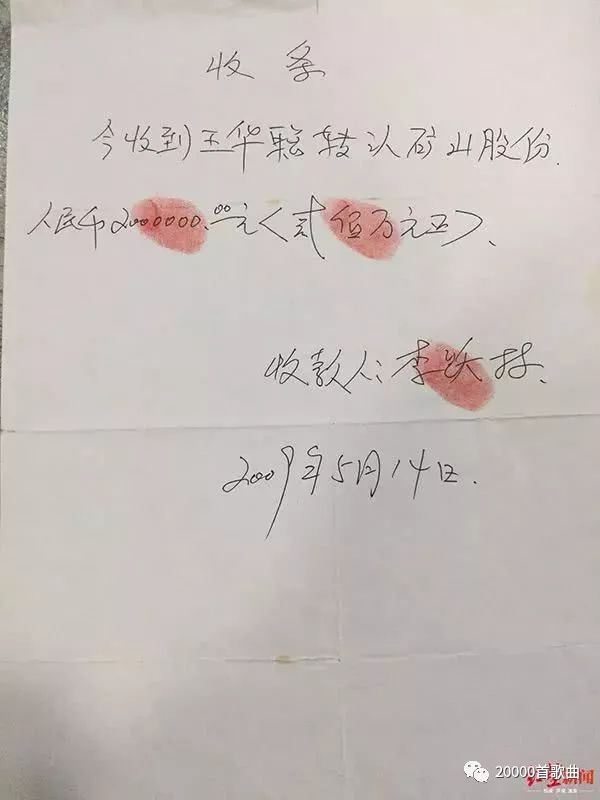 收条
今收到王华聪转认矿山股份.
人民币2000000.00元<贰佰万元正>、
收款人: 李跃林、
2009年5月14日.
20000首歌曲
红星新闻